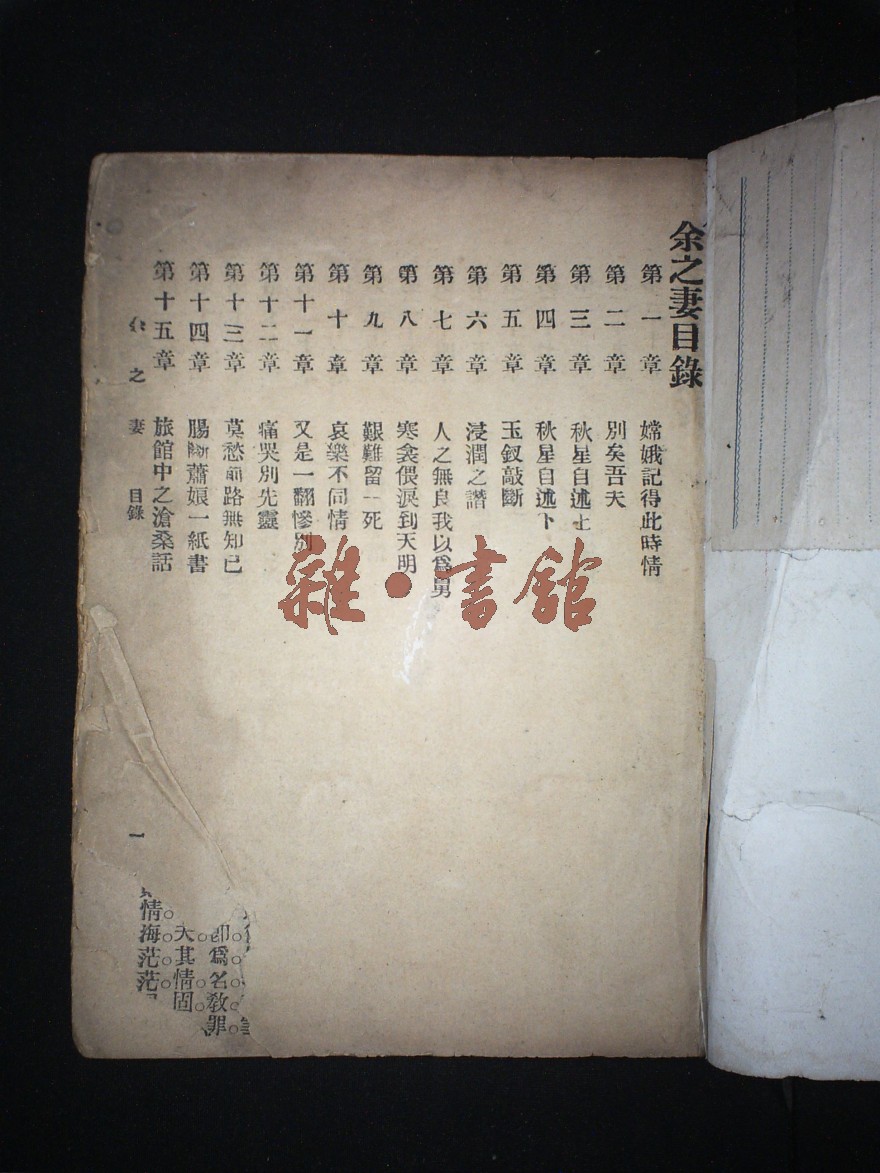 余之妻目錄
第一章 嫦娥記得此時情
第二章 別矣吾夫
第三章 秋星自述上
第四章 秋星自述下
第五章 玉釵敲斷
第六章 浸潤之譖
第七章 人之無良我以爲舅
第八章 寒衾偎淚到天明
第九章 艱難留一死
第十章 哀樂不同情
第十一章 又是一翻慘別
第十二章 痛哭別先靈
第十三章 莫愁前路無知己
第十四章 腸斷蕭娘一紙書
第十五章 旅館中之滄桑話
余之妻 目錄
一
卽爲名教罪
天其情固
情海茫茫
雜·書館